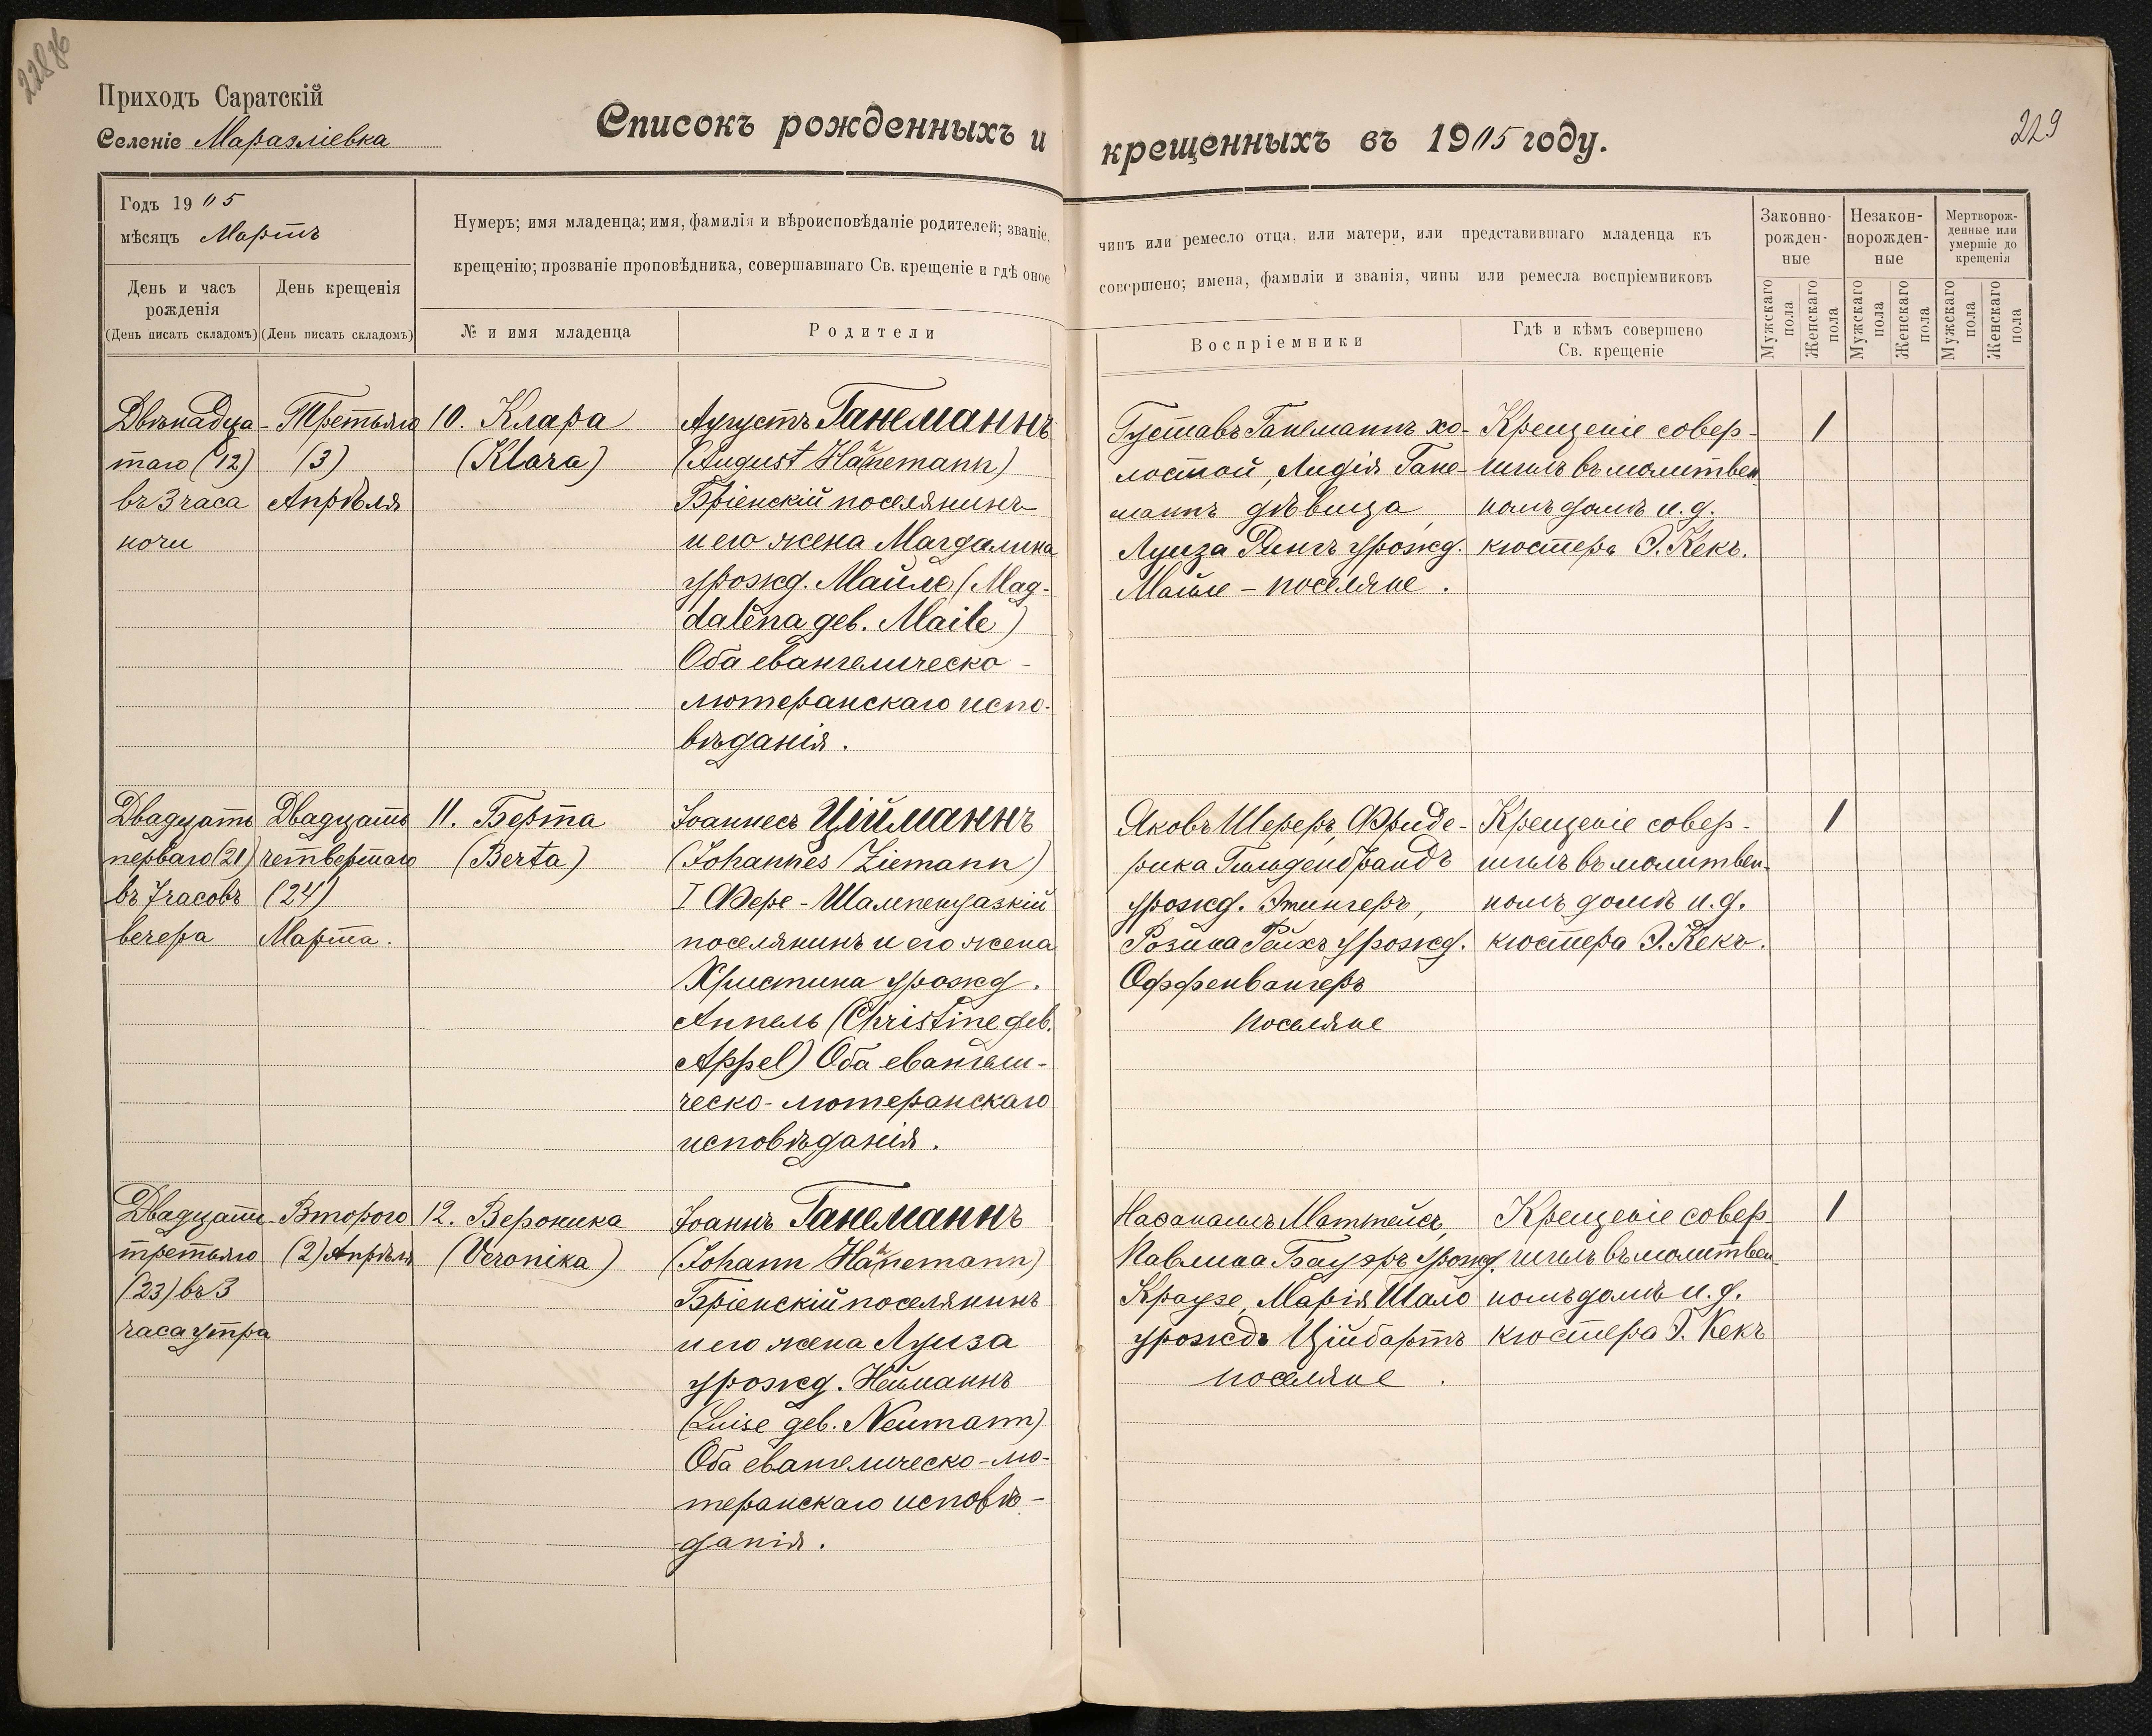 229
Приходъ Саратскій
Селеніе Маразліевка
Списокъ рожденныхъ и крещенныхъ въ 1905 году.
Годъ 1905
мѣсяцъ Мартъ
Нумеръ; имя младенца; имя, фамилія и вѣроисповѣданіе родителей; званіе, чинъ или ремесло отца, или матери, или представившаго младенца къ
крещенію; прозваніе проповѣдника, совершавшаго Св. крещеніе и гдѣ оное совершено; имена, фамиліи и званія, чины или ремесла воспріемниковъ
День и часъ
рожденія
(День писать складомъ)
День крещенія
(День писать складомъ)
№ и имя младенца
Родители
Воспріемники
Гдѣ и кѣмъ совершено
Св. крещеніе
Законно-
рожден-
ные
Незакон-
норожден-
ные
Мертворож-
денные или
умершіе до
крещенія
Мужскаго
пола
Женскаго
пола
Мужскаго
пола
Женскаго
пола
Мужскаго
пола
Женскаго
пола
Двѣнадца-
таго (12)
въ 3 часа
ночи
Третьяго
(3)
Апрѣля
10. Клара
(Klara)
Августъ Ганеманнъ
(August Hannemann)
Бріенскій поселянинъ
и его жена Магдалина
урожд. Майле (Mag-
dalena geb. Maile)
Оба евангелическо-
лютеранскаго испо-
вѣданія.
Густавъ Ганеманнъ хо-
лостой, Лидія Гане-
маннъ дѣвица,
Луиза Рингъ урожд.
Майле - поселяне.
Крещеніе совер-
шилъ въ молитвен
номъ домѣ и. д.
кюстера Э. Кекъ.
1
Двадцать
перваго (21)
въ 7 часовъ
вечера
Двадцать
четвертаго
(24)
Марта.
11. Берта
(Berta)
Іоаннесъ Ційманнъ
(Johannes Ziemann)
I Фере-Шампенуазкій
поселянинъ и его жена
Христина урожд.
Аппель (Christine geb.
Appel) Оба евангели-
ческо-лютеранскаго
исповѣданія.
Яковъ Шереръ, Фриде-
рика Гильденбрандъ
урожд. Этингеръ,
Розина Рейхъ урожд.
Оффенвангеръ
поселяне
Крещеніе совер-
шилъ въ молитвен-
номъ домѣ и. д.
кюстера Э. Кекъ.
1
Двадцать-
третьяго
(23) въ 3
часа утра
Второго
(2) Апрѣля
12. Вероника
(Veronika)
Іоаннъ Ганеманнъ
(Johann Hannemann)
Бріенскій поселянинъ
и его жена Луиза
урожд. Нейманнъ
(Luise geb. Neumann)
Оба евангелическо-лю-
теранскаго исповѣ-
данія.
Наѳанаилъ Маттейсъ,
Павлина Бауэръ урожд.
Краузе, Марія Шало
урождъ Ційбартъ
поселяне.
Крещеніе совер-
шилъ въ молитвен-
номъ домѣ и. д.
кюстера Э. Кекъ
1